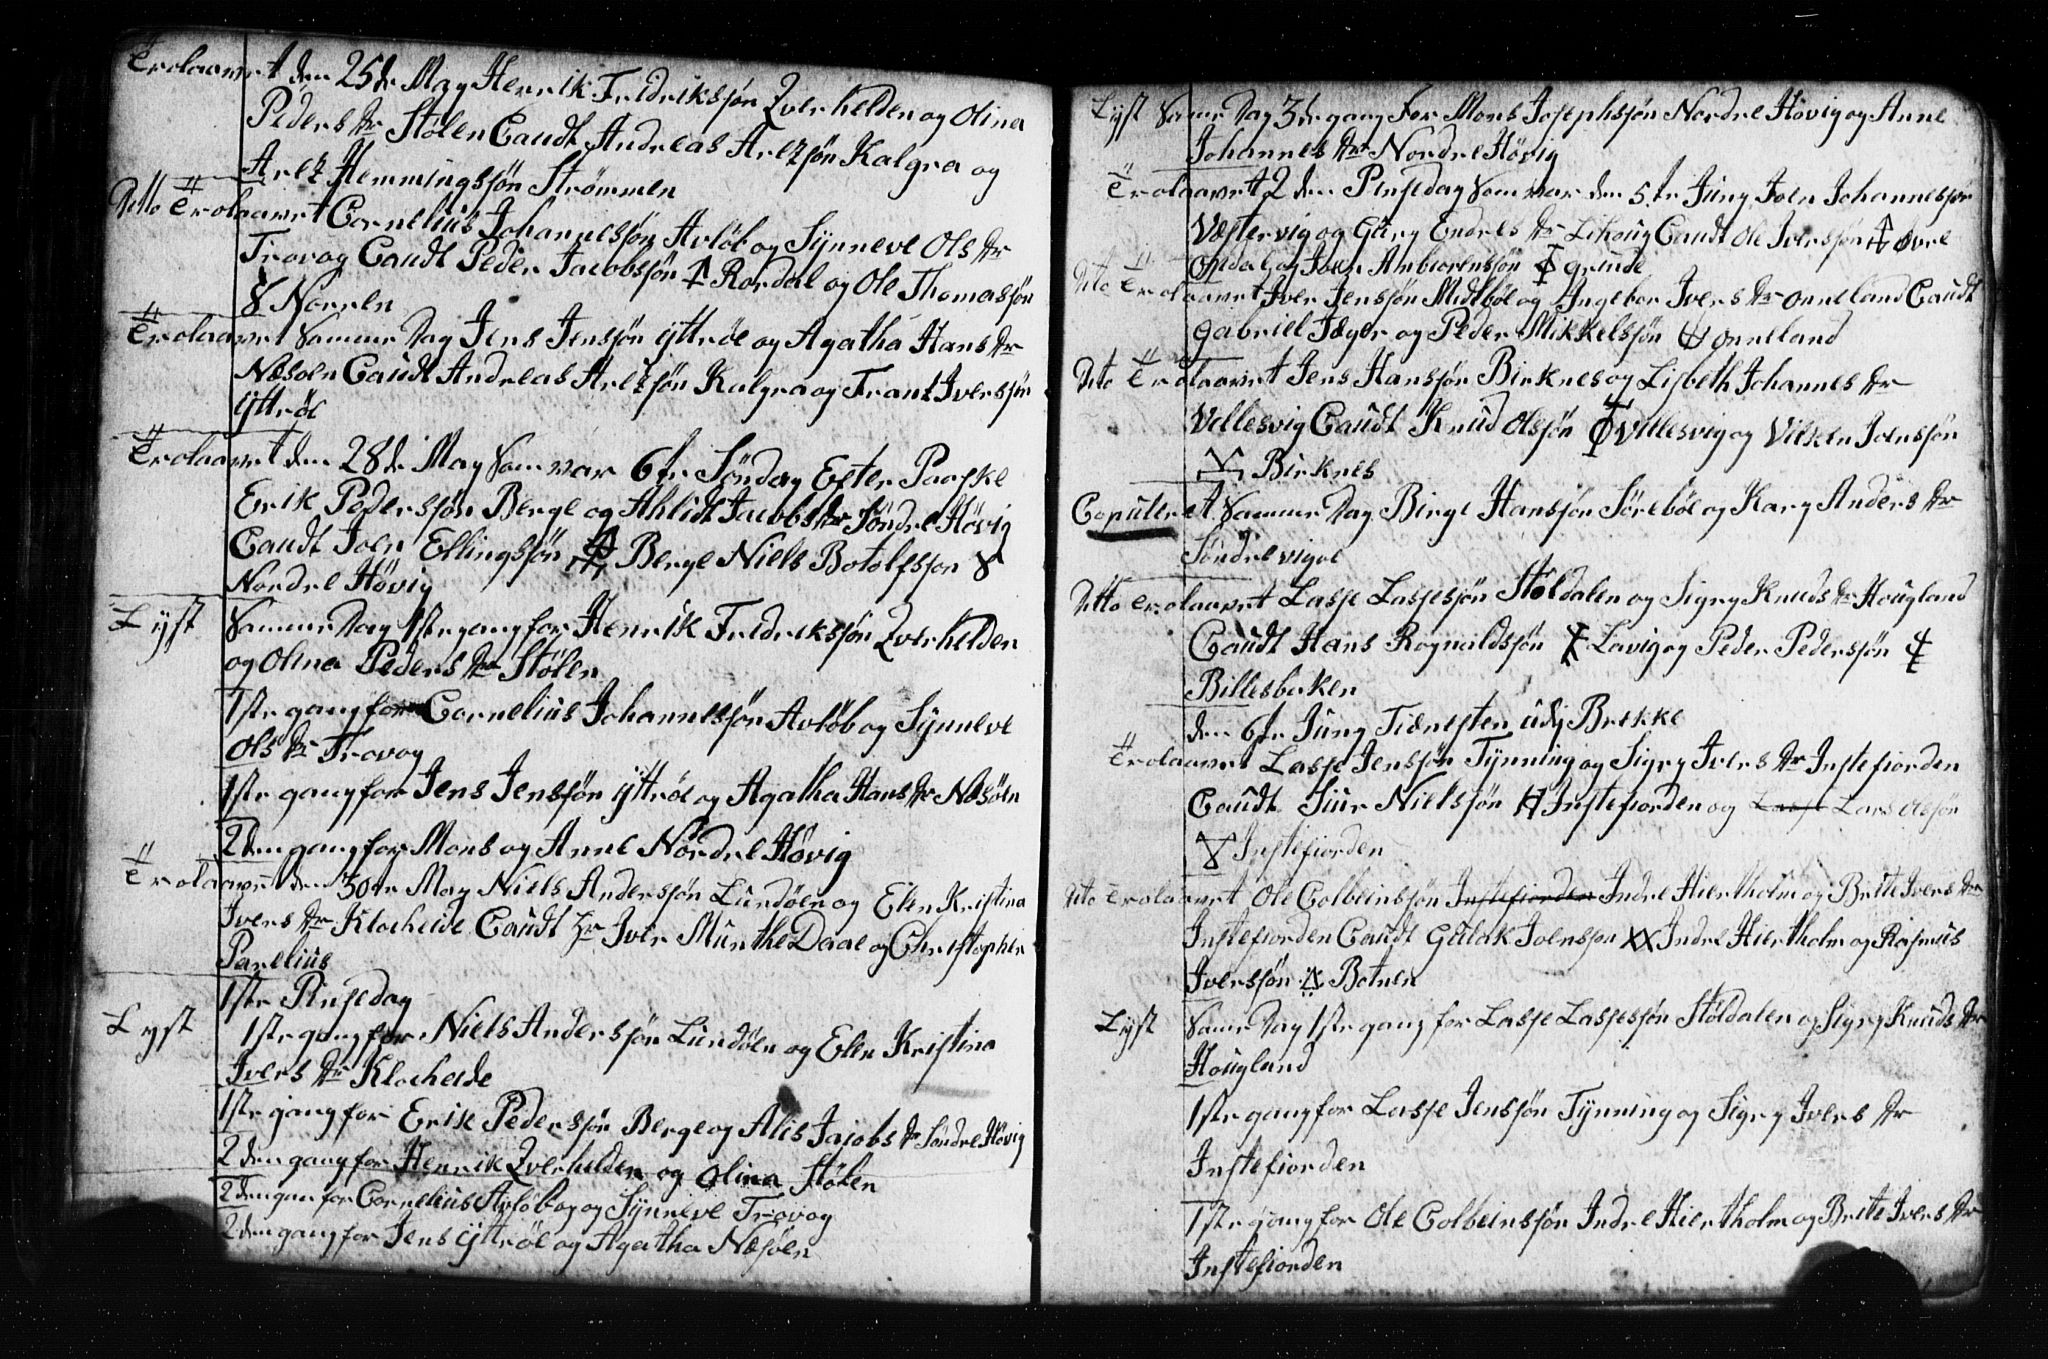 Trolaavet den 25de May Henrik Fridriksjøn Zverhelden og Olina
Peders dr Stølen Caudt Andreas Aretzjøn Kalgra og
Aretz Hemmingsjøn Strømmen
Ditto Trolaavet Cornelius Johannesjøn Avløb og Synneve Ols dr
Trovog Caudt Peder Jacobsjøn Rordal og Ole Thomasjøn
Norren
Trolaavet Samme Dag Jens Jensjøn Yttrøe og Agatha Hans dr
Næsøen Caudt Andreas Aretzjøn Kalgra og Frantz Iversjøn
Yttrøe
Trolaavet den 28de May Som var 6te Søndag Efter Paaske
Erik Pedersjøn Berge og Ahlidt Jacobs dr Søndre Høvig
Caudt Joen Ellingsjøn Berge Niels Botolfsjon
Nordre Høvig
Lyst Samme Dag 1ste gang for Henrik Fridriksjøn Zverhelden
og Olina Peders dr Stølen
1ste gang for Cornelius Johannesjøn Avløb og Synneve
Ols dr Trovog
1ste gang for Jens Jensjøn Yttrøe og Agatha Hans dr Næsøen
2den gang for Mons og Anne Nordre Høvig
Trolaavet den 30te May Niels Andersjøn Lundøen og Elen Kristina
Ivers dr Klocheide Caudt Hr Iver Munthe Daae og Christopher
Parelius
1ste Pinsedag
Lyst 1ste gang for Niels Andersjøn Lundøen og Elen Kristina
Ivers dr Klocheide
1ste gang for Erik Pedersjøn Berge og Alis Jacobs dr Søndre Høvig
2den gang for Henrik Zverhelden og Olina Stølen
2den gan for Cornelius Avløb og Synneve Trovog
2den gang for Jens Yttrøe og Agatha Næsøen
Lyst Samme Dag 3de gang for Mons Josephsjøn Nordre Høvig og Anne
Johannes dr Nordre Høvig
Trolaavet 2den Pinsedag Som var den 5te Juny Joen Johannesjøn
Væstervig og Gury Endres dr Lihoug Caudt Ole Iversjøn Øvre
Opdal og Joen Ambiørensjøn Grinde
Dito Trolaavet Iver Jensjøn Midtbøe og Ingebor Ivers dr Onneland Caudt
Gabriel Jæger og Peder Mikkelsjøn Onneland
Dito Trolaavet Jens Hansjøn Birknes og Lisbeth Johannes dr
Vellesvig Caudt Knud Olsjøn Vellesvig og Villum Joensjøn
Birknes
Copuleret Samme Dag Birge Hansjøn Sørebøe og Kary Anders dr
Søndre vigol
Ditto Trolaavet Lasse Lassesjøn Støldalen og Sigry Knuds dr Hougland
Caudt Hans Rognaldsjøn Lavig og Peder Pedersjøn
Billesbaken
den 6te Juny Tienesten udj Brekke
Trolaavet Lasse Jensjøn Tynning og Sigry Ivers dr Instefiorden
Caudt Siur Nielsjøn Instefiorden og Lasse Lars Olsjøn
Instefiorden
Dito Trolaavet Ole Colbeinsjøn Instefiorden Indre Hiertholm og Brite Ivers dr
Instefiorden Caudt Gulak Joensjon Indre Hiertholm og Rasmus
Iversjøn Botnen
Lyst Samme Dag 1ste gang for Lasse Lassesjøn Støldalen og Sigry Knuds dr
Hougland
1ste gang for Lasse Jensjøn Tynning og Sigry Ivers dr
Instefiorden
1ste gang for Ole Colbeinsjøn Indre Hiertholm og Brite Ivers dr
Instefiorden